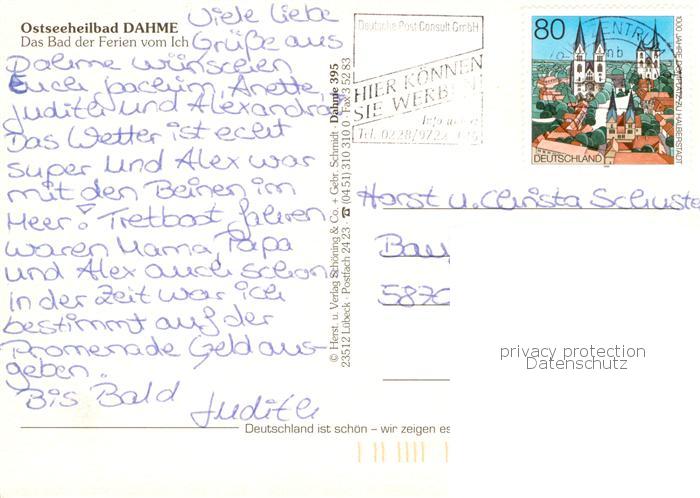 Viele liebe
Ostseeheilbad DAHME
Das Bad der Ferien vom Ich
Grüße aus
Dahme wünschen
Euch Joachim, Anette,
Judith und Alexandra.
Das Wetter ist echt
super und Alex war
mit den Beinen im
Meer! Tretboot fahren
waren Mama, Papa
und Alex auch schon
in der Zeit war ich
bestimmt auf der
Promenade Geld aus-
geben.
Bis Bald Judith
Deutschland ist schön – wir zeigen es
© Herst. u. Verlag Schöning & Co. + Gebr. Schmidt · Dahme 395
23512 Lübeck · Postfach 24 23 · ☎ (04 51) 310 310 0 · Fax 3 52 83
Deutsche Post Consult GmbH
HIER KÖNNEN
SIE WERBEN!
Tel. 0228/9722
80
DEUTSCHLAND
1000 JAHRE DOMSTADT ZU HALBERSTADT
ZENTRUM
Horst u. Christa Schuste
Bau
587
privacy protection
Datenschutz